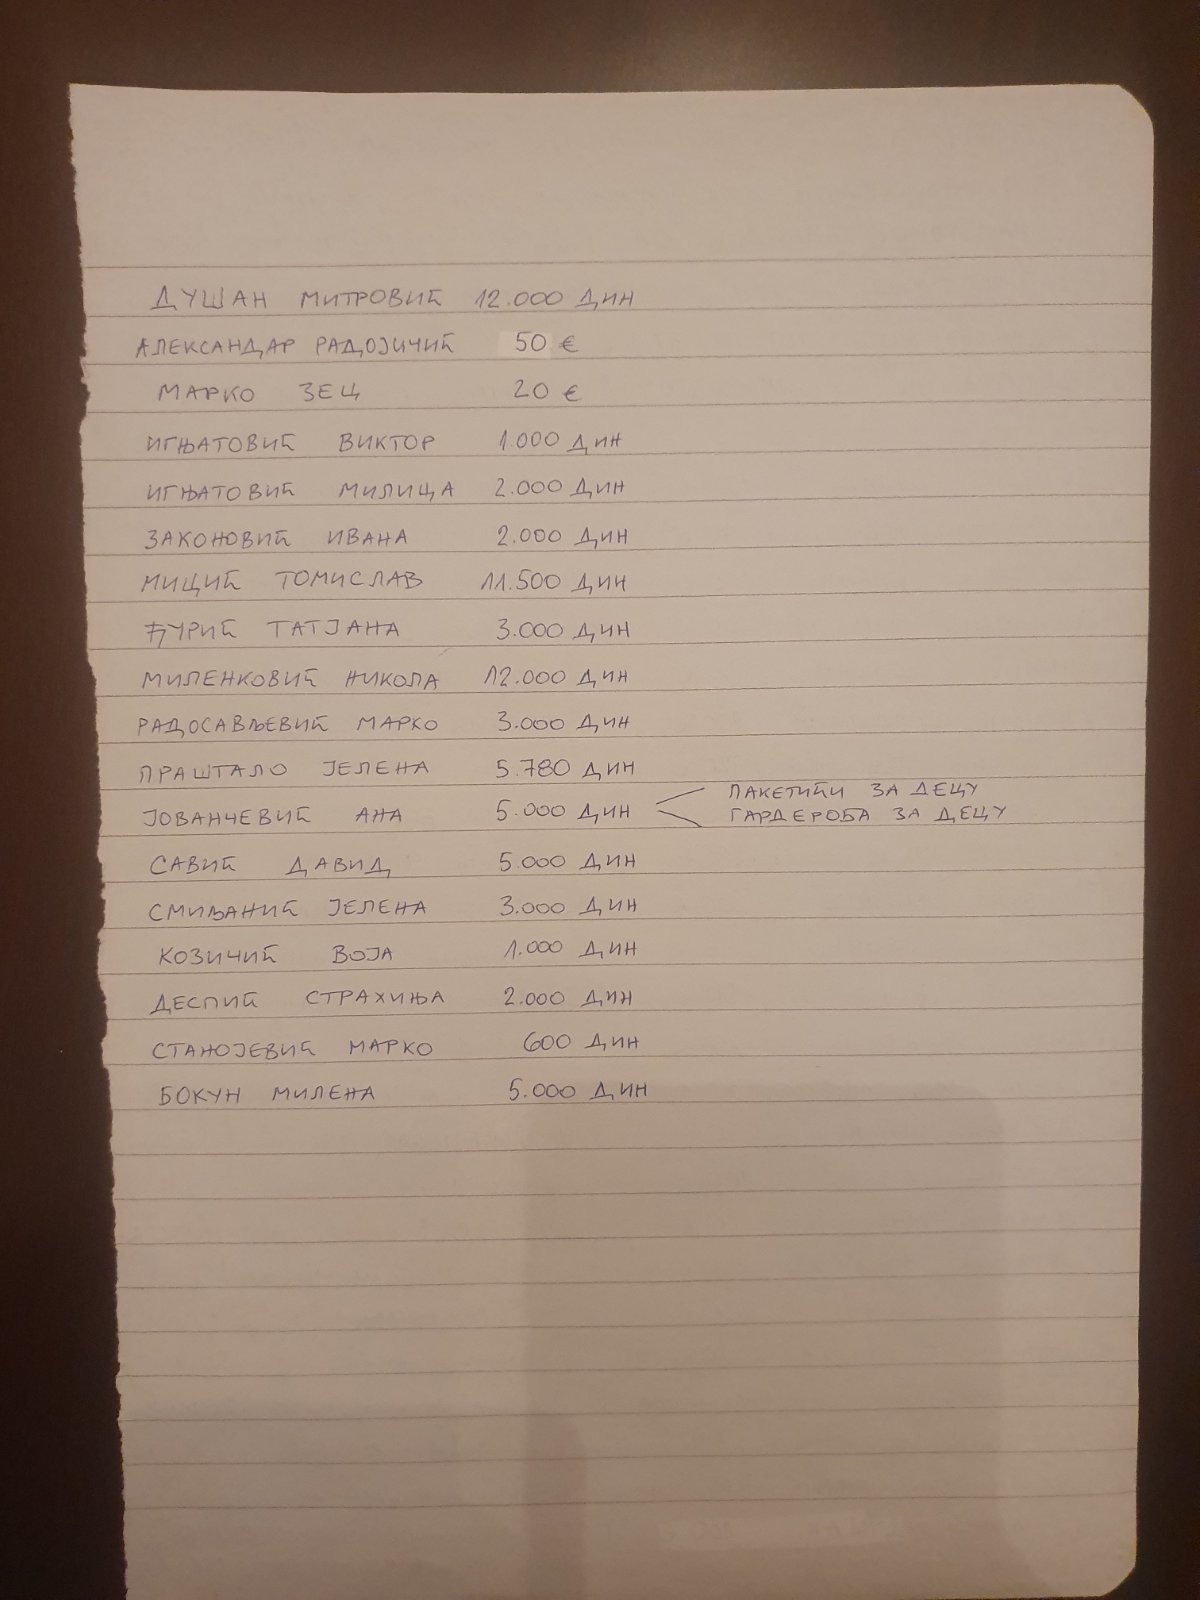 ДУШАН МИТРОВИЋ 12.000 ДИН
АЛЕКСАНДАР РАДОЈИЧИЋ 50 €
МАРКО ЗЕЦ 20 €
ИГЊАТОВИЋ ВИКТОР 1.000 ДИН
ИГЊАТОВИЋ МИЛИЦА 2.000 ДИН
ЗАКОНОВИЋ ИВАНА 2.000 ДИН
МИЦИЋ ТОМИСЛАВ 11.500 ДИН
ЂУРИЋ ТАТЈАНА 3.000 ДИН
МИЛЕНКОВИЋ НИКОЛА 12.000 ДИН
РАДОСАВЉЕВИЋ МАРКО 3.000 ДИН
ПРАШТАЛО ЈЕЛЕНА 5.780 ДИН
ЈОВАНЧЕВИЋ АНА 5.000 ДИН
ПАКЕТИЋИ ЗА ДЕЦУ
ГАРДЕРОБА ЗА ДЕЦУ
САВИЋ ДАВИД 5.000 ДИН
СМИЉАНИЋ ЈЕЛЕНА 3.000 ДИН
КОЗИЧИЋ ВОЈА 1.000 ДИН
ДЕСПИЋ СТРАХИЊА 2.000 ДИН
СТАНОЈЕВИЋ МАРКО 600 ДИН
БОКУН МИЛЕНА 5.000 ДИН